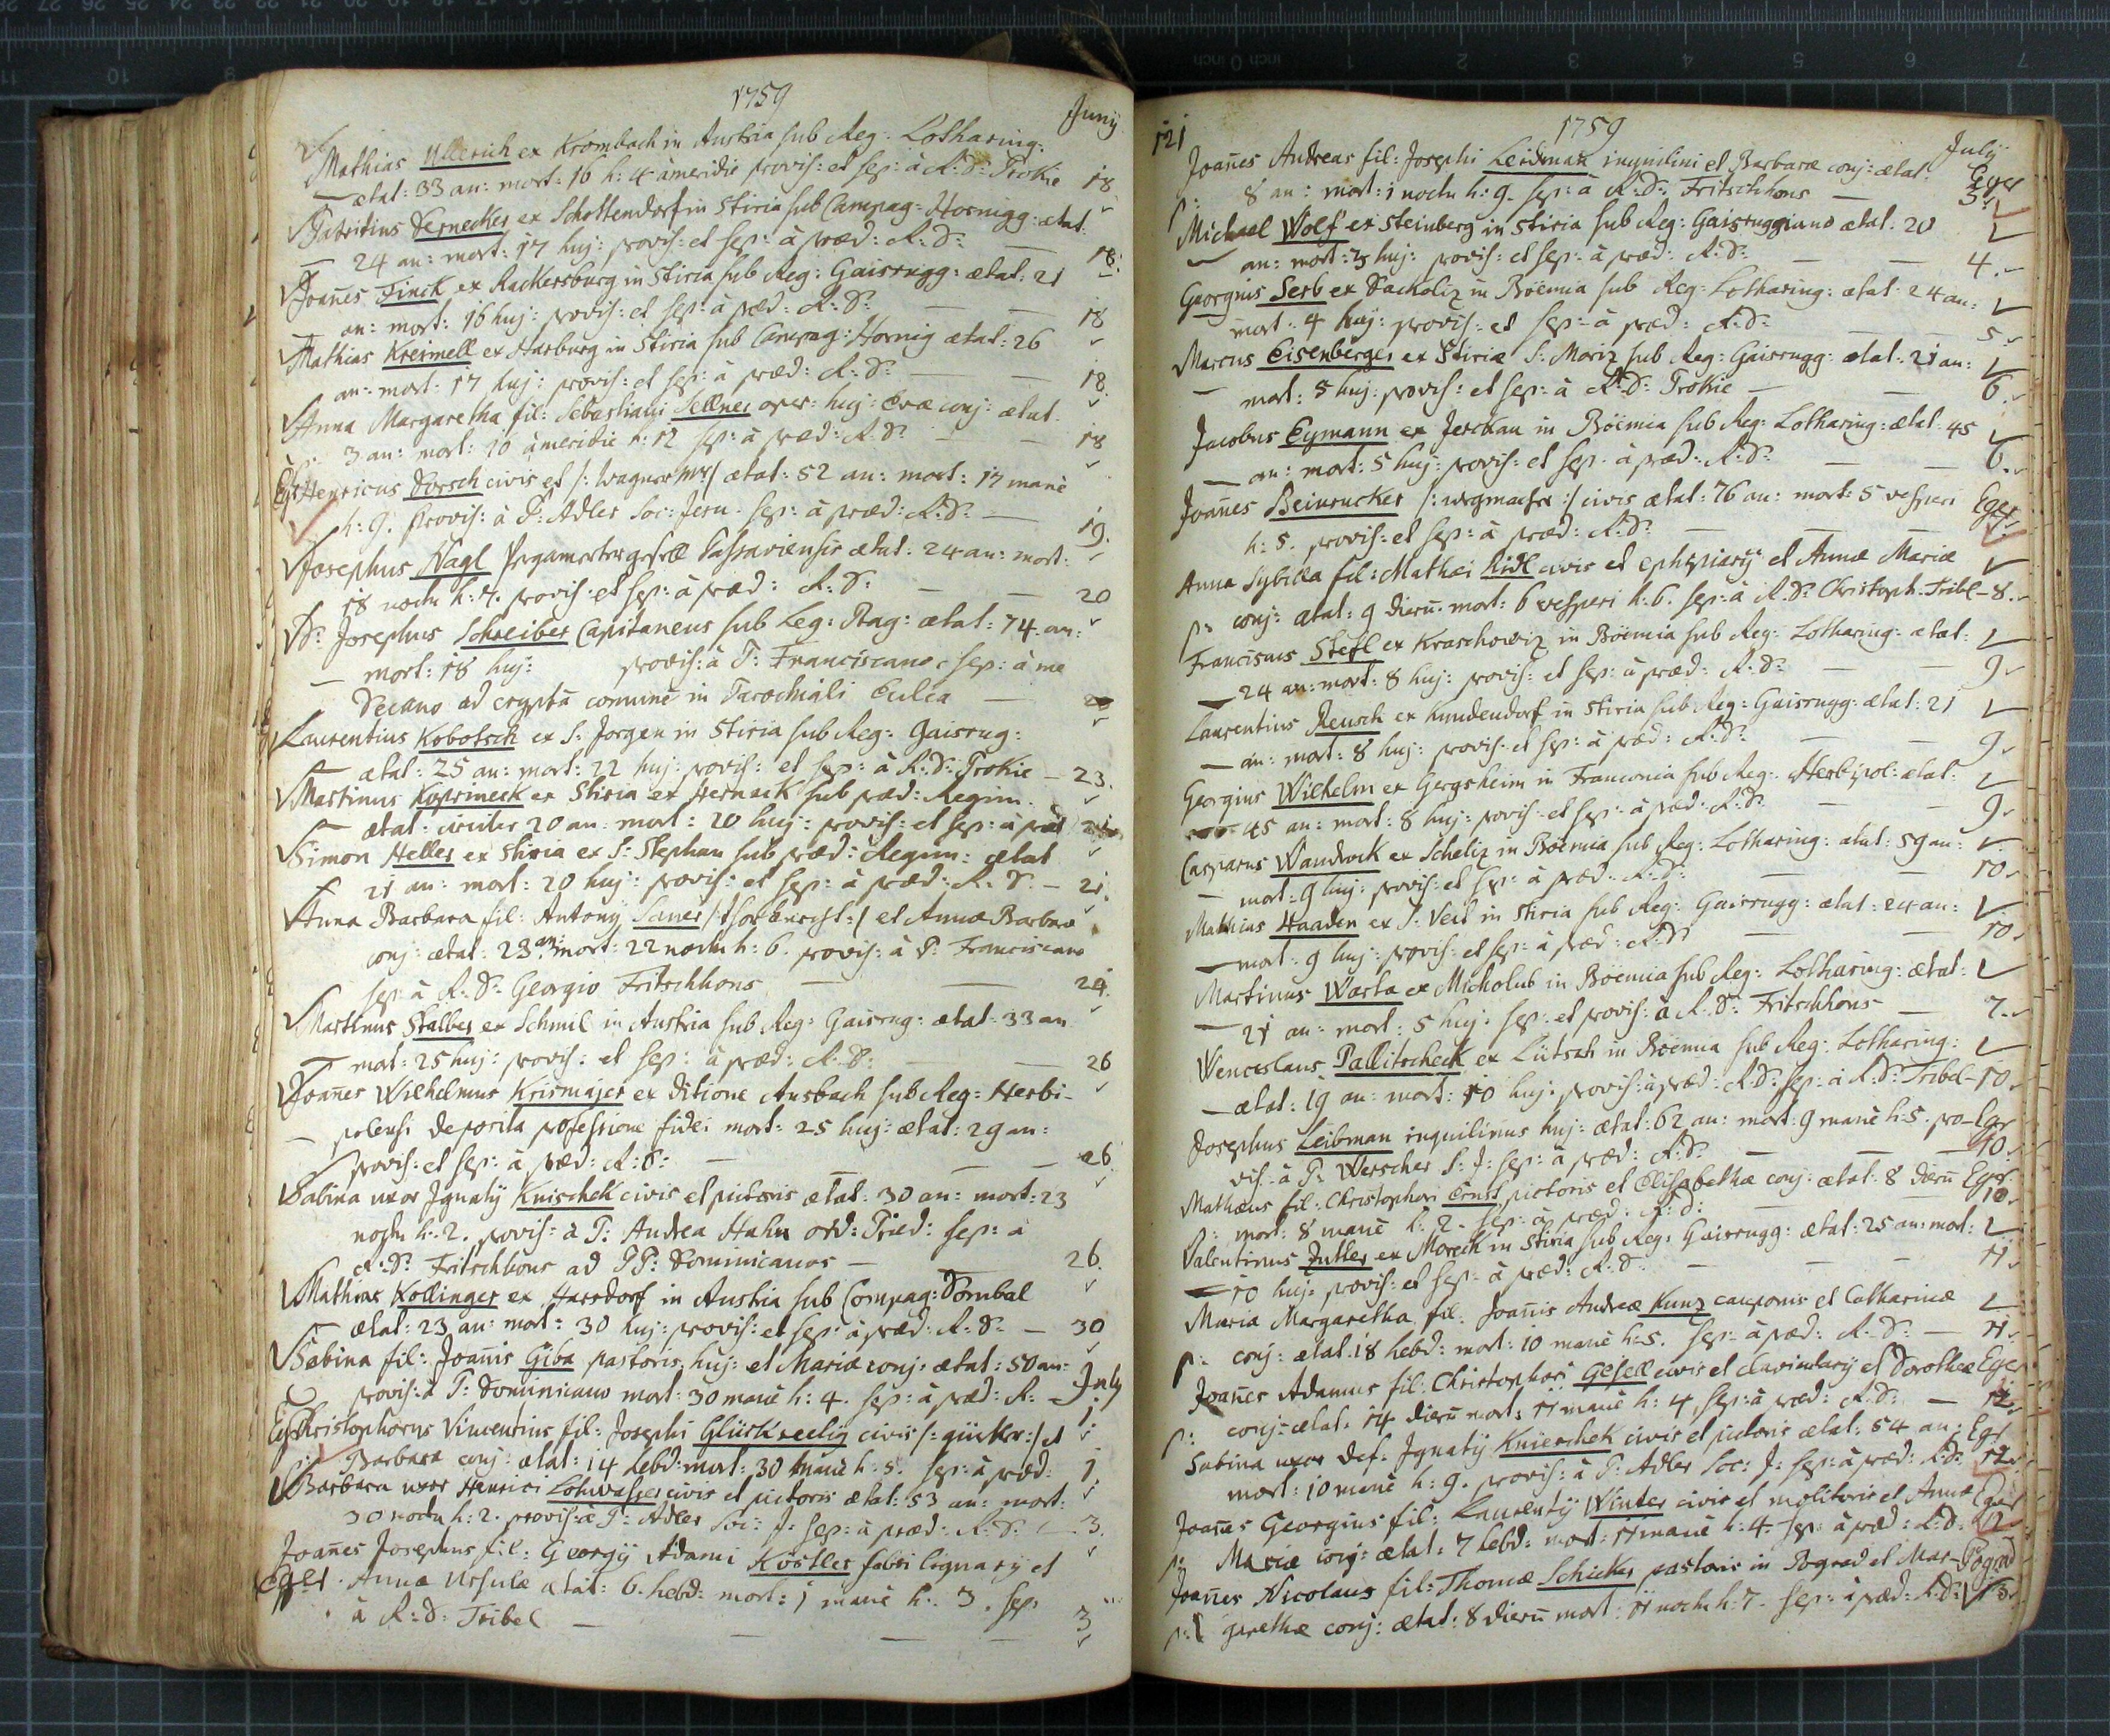 1759
Junij
Mathias Ullerich ex Krombach in Austria sub Reg: Lotharing:
ætat: 33 an: mort: 16 h: 4 à meridie provis: et sep: à R: D: Trokie 18
Patritius Sernecker ex Schottendorf in Stiria sub Campag: Hornigg: ætat:
24 an: mort: 17 huj: provis: et sep: à præd: R: D: 18:
Joañes Finck ex Rackersburg in Stiria sub Reg: Gaisrugg: ætat: 21
an: mort: 16 huj: provis: et sep: à præd: R: D: 18
Mathias Kreimell ex Harburg in Stiria sub Campag: Hornig ætat: 26
an: mort: 17 huj: provis: et sep: à præd: R: D: 18.
Anna Margaretha fil: Sebastiani Sellner oper: huj: Evæ conj: ætat.
3 an: mort: 10 à meridie h: 12 sep: à præd: R: D: 18
Eger Henricus Dorsch civis et /: Wagner Mr / ætat: 52 an: mort: 17 manè
h: 9. provis: à P: Adler Soc: Jesu. sep: à præd: R: D: 19.
Josephus Nagl Passaviensis ætat: 24 an: mort:
18 noctu h: 7. provis: et sep: à præd: R: D: 20
D: Josephus Schreiber Capitaneus sub Leg: Prag: ætat: 74 an:
mort: 18 huj: provis: à P: Franciscano, sep: à me
Decano ad cryptã comunẽ in Parochiali Ecclea
Laurentius Kobotsch ex S: Jorgen in Stiria sub Reg: Gaisrug:
ætat: 25 an: mort: 22 huj: provis: et sep: à R: D: Trokie 23.
Martinus Koprineck ex Stiria ex Herneck sub præd: Regim.
ætat: circiter 20 an mort: 20 huj: provis: et sep: à præd 21
Simon Heller ex Stiria ex S: Stephan sub præd: Regim: ætat
21 an: mort: 20 huj: provis: et sep: à præd: R: D. 21.
Anna Barbara fil: Antonij Saner et Annæ Barbaræ
conj: ætat: 23 an: mort: 22 noctu h: 6. provis: à P: Franciscano
sep: à R: D: Georgio Fritschhons 24.
Martinus Stalber ex Schmil in Austria sub Reg: Gaisrug: ætat: 33 an
mort: 25 huj: provis: et sep: à præd: R: D: 26
Joañes Wilhelmus Krismajer ex ditione Ansbach sub Reg: Herbi-
polensi deposita professione fidei mort: 25 huj: ætat: 29 an:
provis: et sep: à præd: R: D: 26.
Sabina uxor Jgnatij Knischek civis et pictoris ætat: 30 an: mort: 23
noctu h: 2. provis: à P: Andrea Hahn ord: Præd: sep: à
R: D: Fritschhons ad PP: Dominicanos 26.
Mathias Kollinger ex Harsdorf in Austria sub Compag: Dombal
ætat: 23 an: mort: 30 huj: provis: et sep: à præd: R: D. 30
Sabina fil: Joañis Giba pastoris huj: et Mariæ conj: ætat: 50 an:
provis: à P: Dominicano mort: 30 manè h: 4. sep: à præd: R: July
Eger Christophorus Vincentius fil: Josephi Glückseelig civis et 1:
Barbara conj: ætat: 14 hebd: mort: 30 manè h: 5. sep: à præd: 1.
Barbara uxor Henrici Lohwasser civis et pictoris ætat: 53 an: mort:
30 noctu h: 2. provis: à P: Adler Soc: J: sep: à præd: R: D. 3.
Joañes Josephus fil: Georgij Adami Köstler fabri lignarij et
Eger Annæ Ursulæ ætat: 6. hebd: mort: 1 manè h: 3. sep
à R: D: Tribel 3
121
1759
July
Joañes Andreas fil: Josephi Leidman inquilini et Barbaræ conj: ætat: Eger
8 an: mort: 1 noctu h: 9. sep: à R: D: Fritschhons 3.
Michael Wolf ex Steinberg in Stiria sub Reg: Gaisruggiano ætat: 20
an: mort: 3 huj: provis: et sep: à præd: R: D: 4.
Georgius Serb ex Dackoliz in Böemia sub Reg: Lotharing: ætat: 24 an:
mort: 4 huj: provis: et sep: à præd: R: D: 5
Marcus Eisenberger ex Stiriæ S: Moriz sub Reg: Gaisrugg: ætat: 21 an:
mort: 5 huj: provis: et sep: à R: D: Trokie 6.
Jacobus Eymann ex Jerckau in Böemia sub Reg: Lotharing: ætat: 45
an: mort: 5 huj: provis: et sep: à præd: R: D: 6.
Joañes Beinrucker /: wegmacher :/ civis ætat: 76 an: mort: 5 vesperi Eger
h: 5. provis: et sep: à præd: R: D:
Anna Sybilla fil: Mathæi Ridl civis et ephipiarij et Annæ Mariæ
conj: ætat: 9 dierũ mort: 6 vesperi h: 6. sep: à R: D: Christoph. Tribl 8.
Franciscus Stefl ex Kraschowiz in Böemia sub Reg: Lotharing: ætat:
24 an: mort: 8 huj: provis: et sep: à præd: R: D: 9
Laurentius Reusch ex Kundendorf in Stiria sub Reg: Gaisrugg: ætat: 21
an: mort: 8 huj: provis: et sep: à præd: R: D: 9.
Georgius Wilhelm ex Gergsheim in Franconia sub Reg: Herbipol: ætat:
45 an: mort: 8 huj: provis: et sep: à præd: R: D: 9.
Casparus Wandrock ex Scheliz in Böemia sub Reg: Lotharing: ætat: 59 an:
mort: 9 huj: provis: et sep: à præd: R: D: 10.
Mathias Haaden ex S: Veit in Stiria sub Reg: Gaisrugg: ætat: 24 an:
mort: 9 huj: provis: et sep: à præd: R: D: 10.
Martinus Warta ex Micholub in Böemia sub Reg: Lotharing: ætat:
21 an: mort: 5 huj: sep: et provis: à R: D: Fritschhons 7.
Wenceslaus Pallitscheck ex Liitsch in Böemia sub Reg: Lotharing:
ætat: 19 an: mort: 10 huj: provis: à præd: R: D: sep: à R: D: Tribel 10.
Josephus Leibman inquilinus huj: ætat: 62 an: mort: 9 manè h: 5. pro- Eger
vis: à P: Werscher S: J: sep: à præd: R: D: 10.
Mathæus fil: Christophori Ernst pictoris et Elisabethæ conj: ætat: 8 dierũ Eger
mort: 8 manè h: 2. sep: à præd: R: D: 10.
Valentinus Jutler ex Moreck in Stiria sub Reg: Gaisrugg: ætat: 25 an: mort:
10 huj: provis: et sep: à præd: R: D. 11.
Maria Margaretha fil: Joañis Andreæ Kunz cauponis et Catharinæ
conj: ætat: 18 hebd: mort: 10 manè h: 5. sep: à præd: R: D: 11.
Joañes Adamus fil: Christophori Gesell civis et claviculary et Dorotheæ Eger
conj: ætat: 14 dierũ mort: 11 manè h: 4, sep: à præd: R: D: 12.
Sabina uxor def: Jgnatij Knierschek civis et pictoris ætat: 54 an: Eger
mort: 10 manè h: 9. provis: à P: Adler Soc: J: sep: à præd: R: D: 12.
Joañes Georgius fil: Laurentij Winter civis et molitoris et Annæ Eger
Mariæ conj: ætat: 7 hebd: mort: 11 manè h: 4. sep: à præd: R: D: 12.
Joañes Nicolaus fil: Thomæ Schicker pastoris in Pograd et Mar- Pograd
garethæ conj: ætat: 8 dierũ mort: 11 noctu h: 7. sep: à præd: R: D: 13.